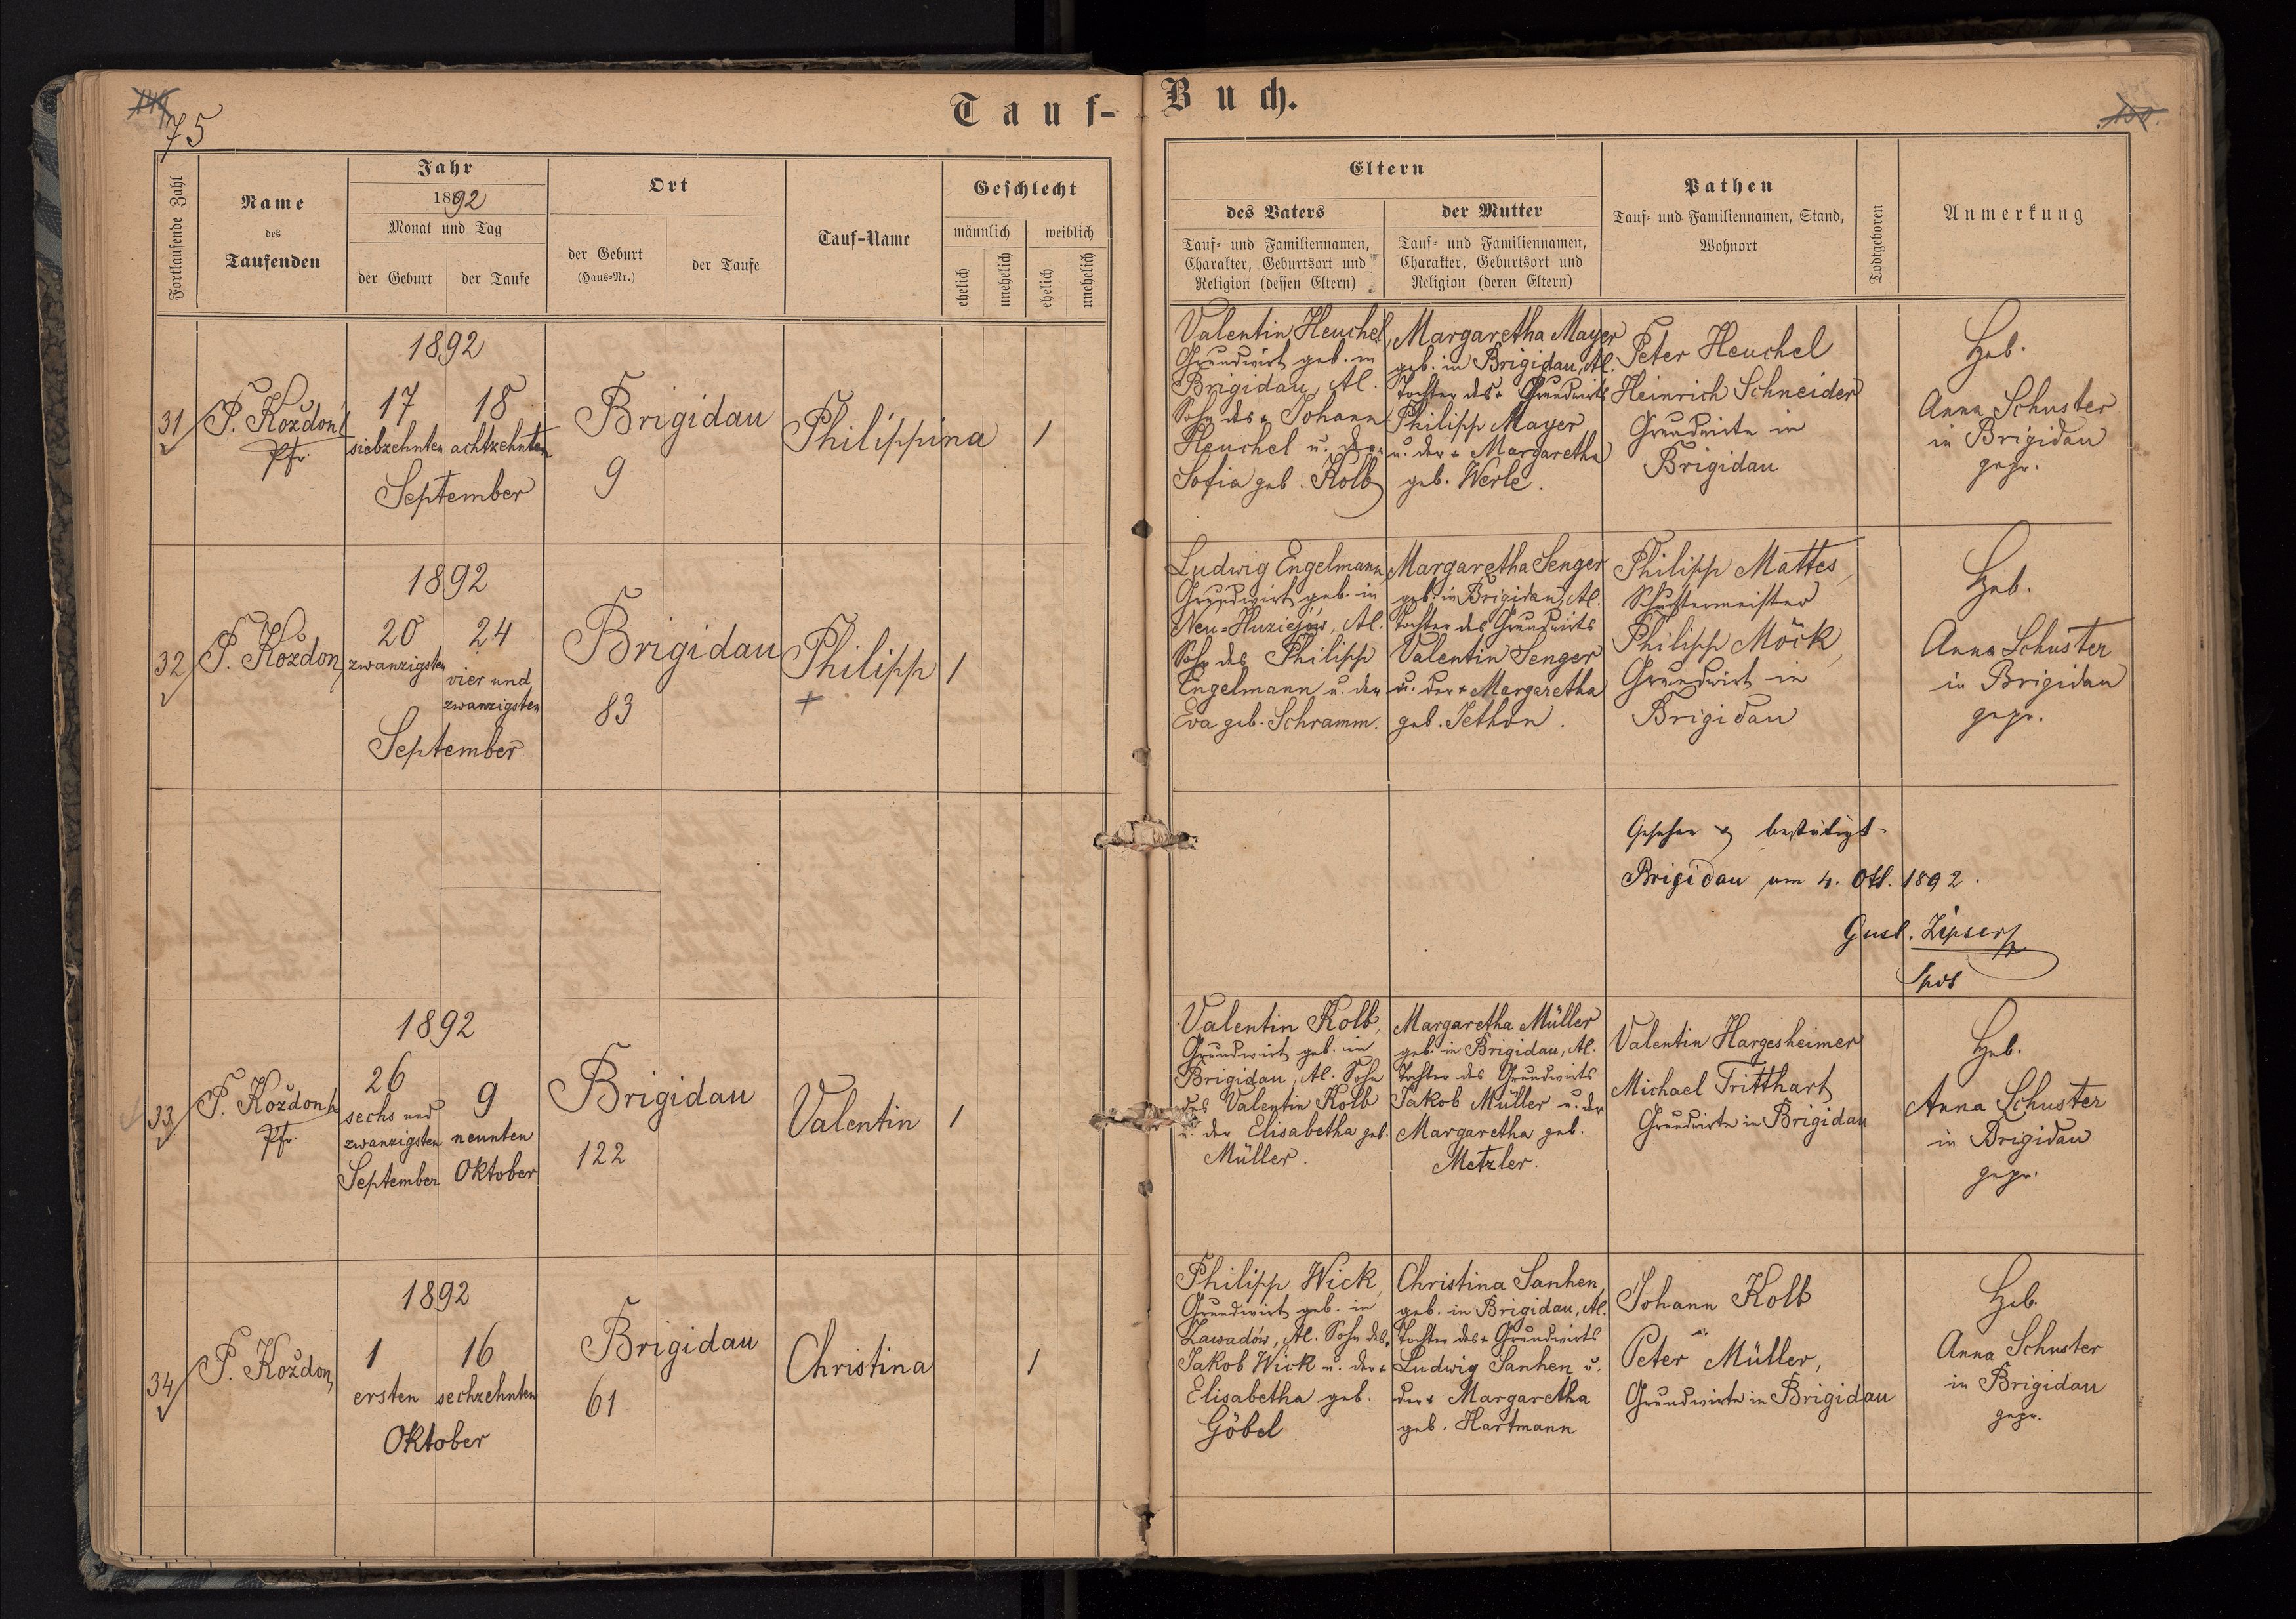 75
Tauf-Buch.
Fortlaufende Zahl
Name
des
Taufenden
Jahr
1892
Monat und Tag
der Geburt
der Taufe
Ort
der Geburt
(Haus-Nr.)
der Taufe
Tauf-Name
Geschlecht
männlich
weiblich
ehelich
unehelich
ehelich
unehelich
Eltern
des Vaters
Tauf- und Familiennamen,
Charakter, Geburtsort und
Religion (dessen Eltern)
der Mutter
Tauf- und Familiennamen,
Charakter, Geburtsort und
Religion (deren Eltern)
Pathen
Tauf- und Familiennamen, Stand,
Wohnort
Todtgeboren
Anmerkung
31
P. Koždoń
Pfr.
1892
17
siebzehnten
18
achtzehnten
September
Brigidau
9
Philippina
1
Valentin Heuchel,
Grundwirt geb. in
Brigidau, Al.
Sohn des + Johann
Heuchel u. der
Sofia geb. Kolb
Margaretha Mayer
geb. in Brigidau, Al.
Tochter des + Grundwirts
Philipp Mayer
u. der + Margaretha
geb. Werle.
Peter Heuchel
Heinrich Schneider
Grundwirte in
Brigidau
Heb.
Anna Schuster
in Brigidau
gepr.
32
P. Koždoń
1892
20
zwanzigsten
24
vier und
zwanzigsten
September
Brigidau
83
Philipp
+
1
Ludwig Engelmann,
Grundwirt geb. in
Neu-Huziejów, Al.
Sohn des Philipp
Engelmann u. der
Eva geb. Schramm.
Margaretha Senger
geb. in Brigidau, Al.
Tochter des Grundwirts
Valentin Senger
u. der + Margaretha
geb. Jethon.
Philipp Mattes,
Schustermeister
Philipp Möck,
Grundwirt in
Brigidau
Heb.
Anna Schuster
in Brigidau
gepr.
Gesehen & bestätigt
Brigidau am 4. Okt. 1892.
Gust. Zipser
33
P. Koždoń
Pfr.
1892
26
sechs und
zwanzigsten
September
9
neunten
Oktober
Brigidau
122
Valentin
1
Valentin Kolb,
Grundwirt geb. in
Brigidau, Al. Sohn
des Valentin Kolb
u. der Elisabetha geb.
Müller.
Margaretha Müller
geb. in Brigidau, Al.
Tochter des Grundwirts
Jakob Müller u. der
Margaretha geb.
Metzler.
Valentin Hargesheimer
Michael Tritthart
Grundwirte in Brigidau
Heb.
Anna Schuster
in Brigidau
gepr.
34
P. Koždoń
1892
1
ersten
16
sechzehnten
Oktober
Brigidau
61
Christina
1
Philipp Wick,
Grundwirt geb. in
Zawadów, Al. Sohn des +
Jakob Wick u. der +
Elisabetha geb.
Göbel.
Christina Sanhen,
geb. in Brigidau, Al.
Tochter des + Grundwirts
Ludwig Sanhen u.
der + Margaretha
geb. Hartmann
Johann Kolb
Peter Müller,
Grundwirte in Brigidau
Heb.
Anna Schuster
in Brigidau
gepr.